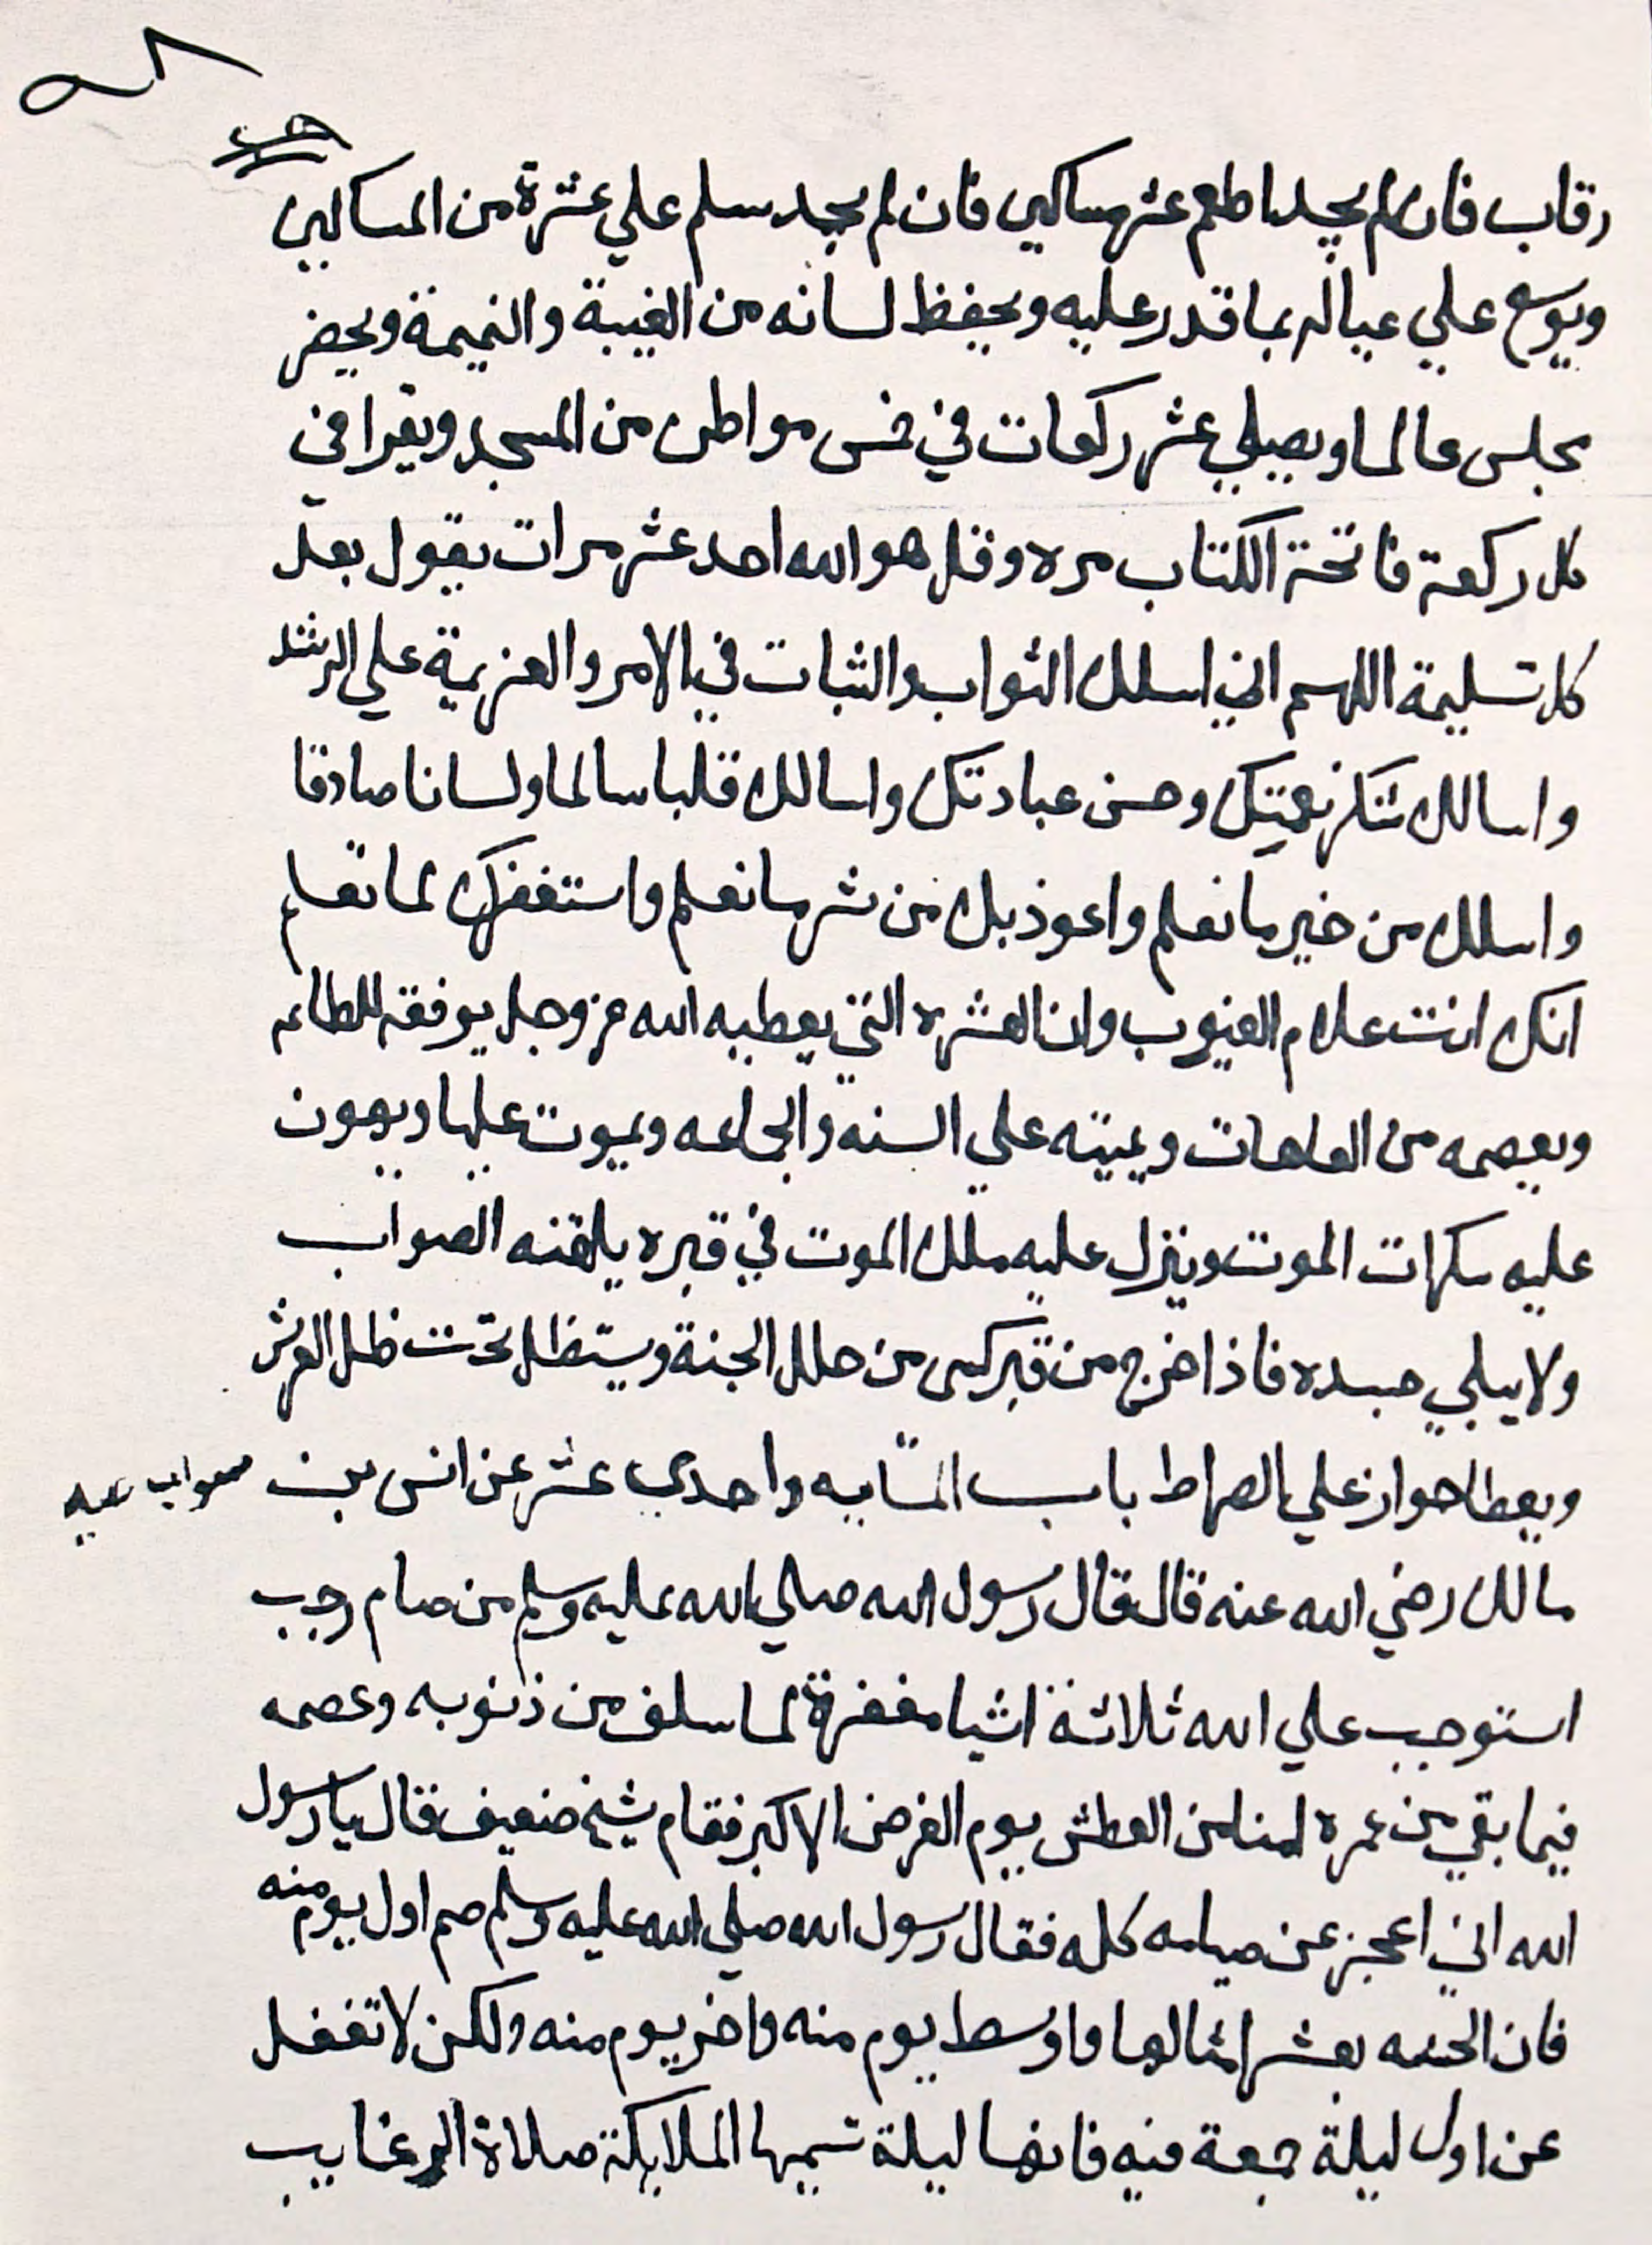 رقاب فان لم يجد اطعم عشر مساكين فان لم يجد سلم علي عشرة من المساكين
ويوسع علي عياله بما قدر عليه ويحفظ لسانه من الغيبة والنميمة ويحضر
مجلس عالما ويصلي عشر ركعات في خمس مواطن من المسجد ويقرا في
كل ركعة فاتحة الكتاب مره وقل هو الله احد عشر مرات يقول بعد
كل تسليمة اللهم اني اسلك الثواب والثبات في الامر والعزيمة علي الرشد
واسالك شكر نعمتك وحسن عبادتك واسالك قلبا سالما ولسانا صادقا
واسلك من خير ما تعلم واعوذ بك من شر ما تعلم واستغفرك لما تعلم
انك انت علام الغيوب وان العشره التي يعطيه الله عز وجل يوفقه للطاعه
ويعصمه من العاهات ويميته علي السنه والجماعه ويموت عليها ويهون
عليه سكرات الموت وينزل عليه ملك الموت في قبره يلقنه الصواب
ولا يبلي جسده فاذا خرج من قبر كسى من حلل الجنة ويستظل تحت ظل العرش
ويعطا جواز علي الصراط باب المايه واحدي عشر عن انس بن
مالك رضي الله عنه قال قال رسول الله صلي الله عليه وسلم من صام رجب
استوجب علي الله ثلاثة اشيا مغفرة لما سلف من ذنوبه وعصمه
فيما بقي من عمره امنا من العطش يوم الفرض الاكبر فقام شيخ ضعيف قال يا رسول
الله اني اعجز عن صيامه كله فقال رسول الله صلي الله عليه وسلم صم اول يوم منه
فان الحسنه بعشر امثالها واوسط يوم منه واخر يوم منه ولكن لا تغفل
عن اول ليلة جمعة فيه فانها ليلة تسميها الملايكة صلاة الرغايب